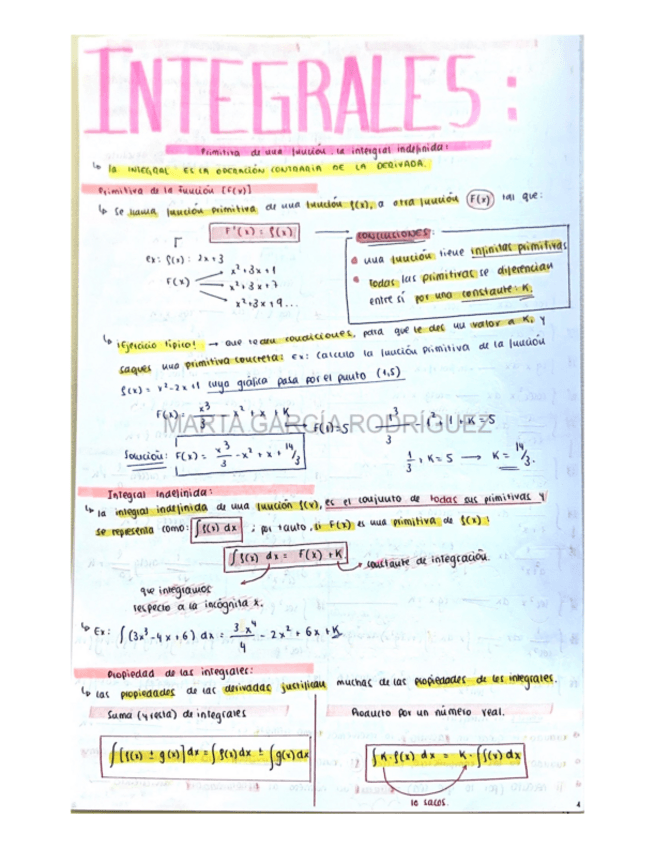 INTEGRALES:
Primitiva de una función. La intergral indefinida:
↳ la INTEGRAL ES LA OPERACIÓN CONTRARIA DE LA DERIVADA.
Primitiva de la función [f(x)]
↳ Se llama función primitiva de una función f(x), a otra función F(x) tal que:
F'(x) = f(x)
CONCLUSIONES:
• una función tiene infinitas primitivas
• Todas las primitivas se diferencian
entre sí por una constante: K.
Ex: f(x): 2x+3
F(x)
x²+3x+1
x²+3x+7
x²+3x+9...
↳ ¡Ejercicio típico! → que te den condiciones, para que le des un valor a K, y
saques una primitiva concreta: Ex: Calcula la función primitiva de la función
f(x) = x²-2x+1 cuya gráfica pasa por el punto (1,5)
F(x): x³/3 - x² + x + K → F(1)=5 1³/3 - 1² + 1 + K = 5
MARTA GARCÍA RODRÍGUEZ
Solución: F(x) = x³/3 - x² + x + 14/3
1/3 + K = 5 → K = 14/3.
Integral Indefinida:
↳ la integral indefinida de una función f(x), es el conjunto de todas sus primitivas y
se representa como: ∫f(x) dx ; por tanto, si F(x) es una primitiva de f(x):
∫f(x) dx = F(x) + K → constante de integración.
que integramos
respecto a la incógnita x.
↳ Ex: ∫(3x³-4x+6) dx = 3x⁴/4 - 2x² + 6x + K
Propiedad de las integrales:
↳ las propiedades de las derivadas justifican muchas de las propiedades de las integrales.
Suma (y resta) de integrales
∫[f(x) ± g(x)] dx = ∫f(x) dx ± ∫g(x) dx
Producto por un número real.
∫K·f(x) dx = K·∫f(x) dx
lo sacas.
4